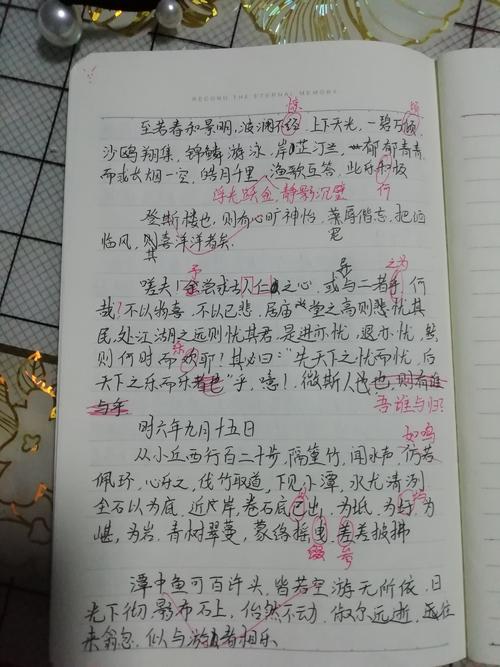 RECORD THE ETERNAL MEMORY
惊 顷
至若春和景明,波澜不经,上下天光,一碧万倾,
沙鸥翔集,锦鳞游泳,岸芷汀兰,郁郁青青
而或长烟一空,皓月千里,渔歌互答,此乐极
浮光跃金,静影沉璧 何
登斯楼也,则有心旷神怡,辱偕忘,把酒
宠
临风,其喜洋洋者矣.
予 异 之为
嗟夫!余尝求古人仁人之心,或与二者乎,何
哉?不以物喜,不以己悲,居庙堂之高则忧其
民,处江湖之远则忧其君,是进亦忧,退亦忧,然
乐
则何时而欢耶?其必曰:"先天下之忧而忧,后
天下之乐而乐"乎,噫!微斯人也,则有谁
与乎 吾谁与归?
时六年九月十五日
如鸣
从小丘西行百二十步,隔篁竹,闻水声,仿若
佩环,心乐之,伐竹取道,下见小潭,水尤清冽
全石以为底,近岸,卷石底已出,为坻,为屿,为
嵁,为岩.青树翠蔓,蒙络摇,差差披拂
缀 参
潭中鱼可百许头,皆若空游无所依,日
光下彻,影布石上,佁然不动,俶尔远逝,往
来翕忽.似与游者相乐